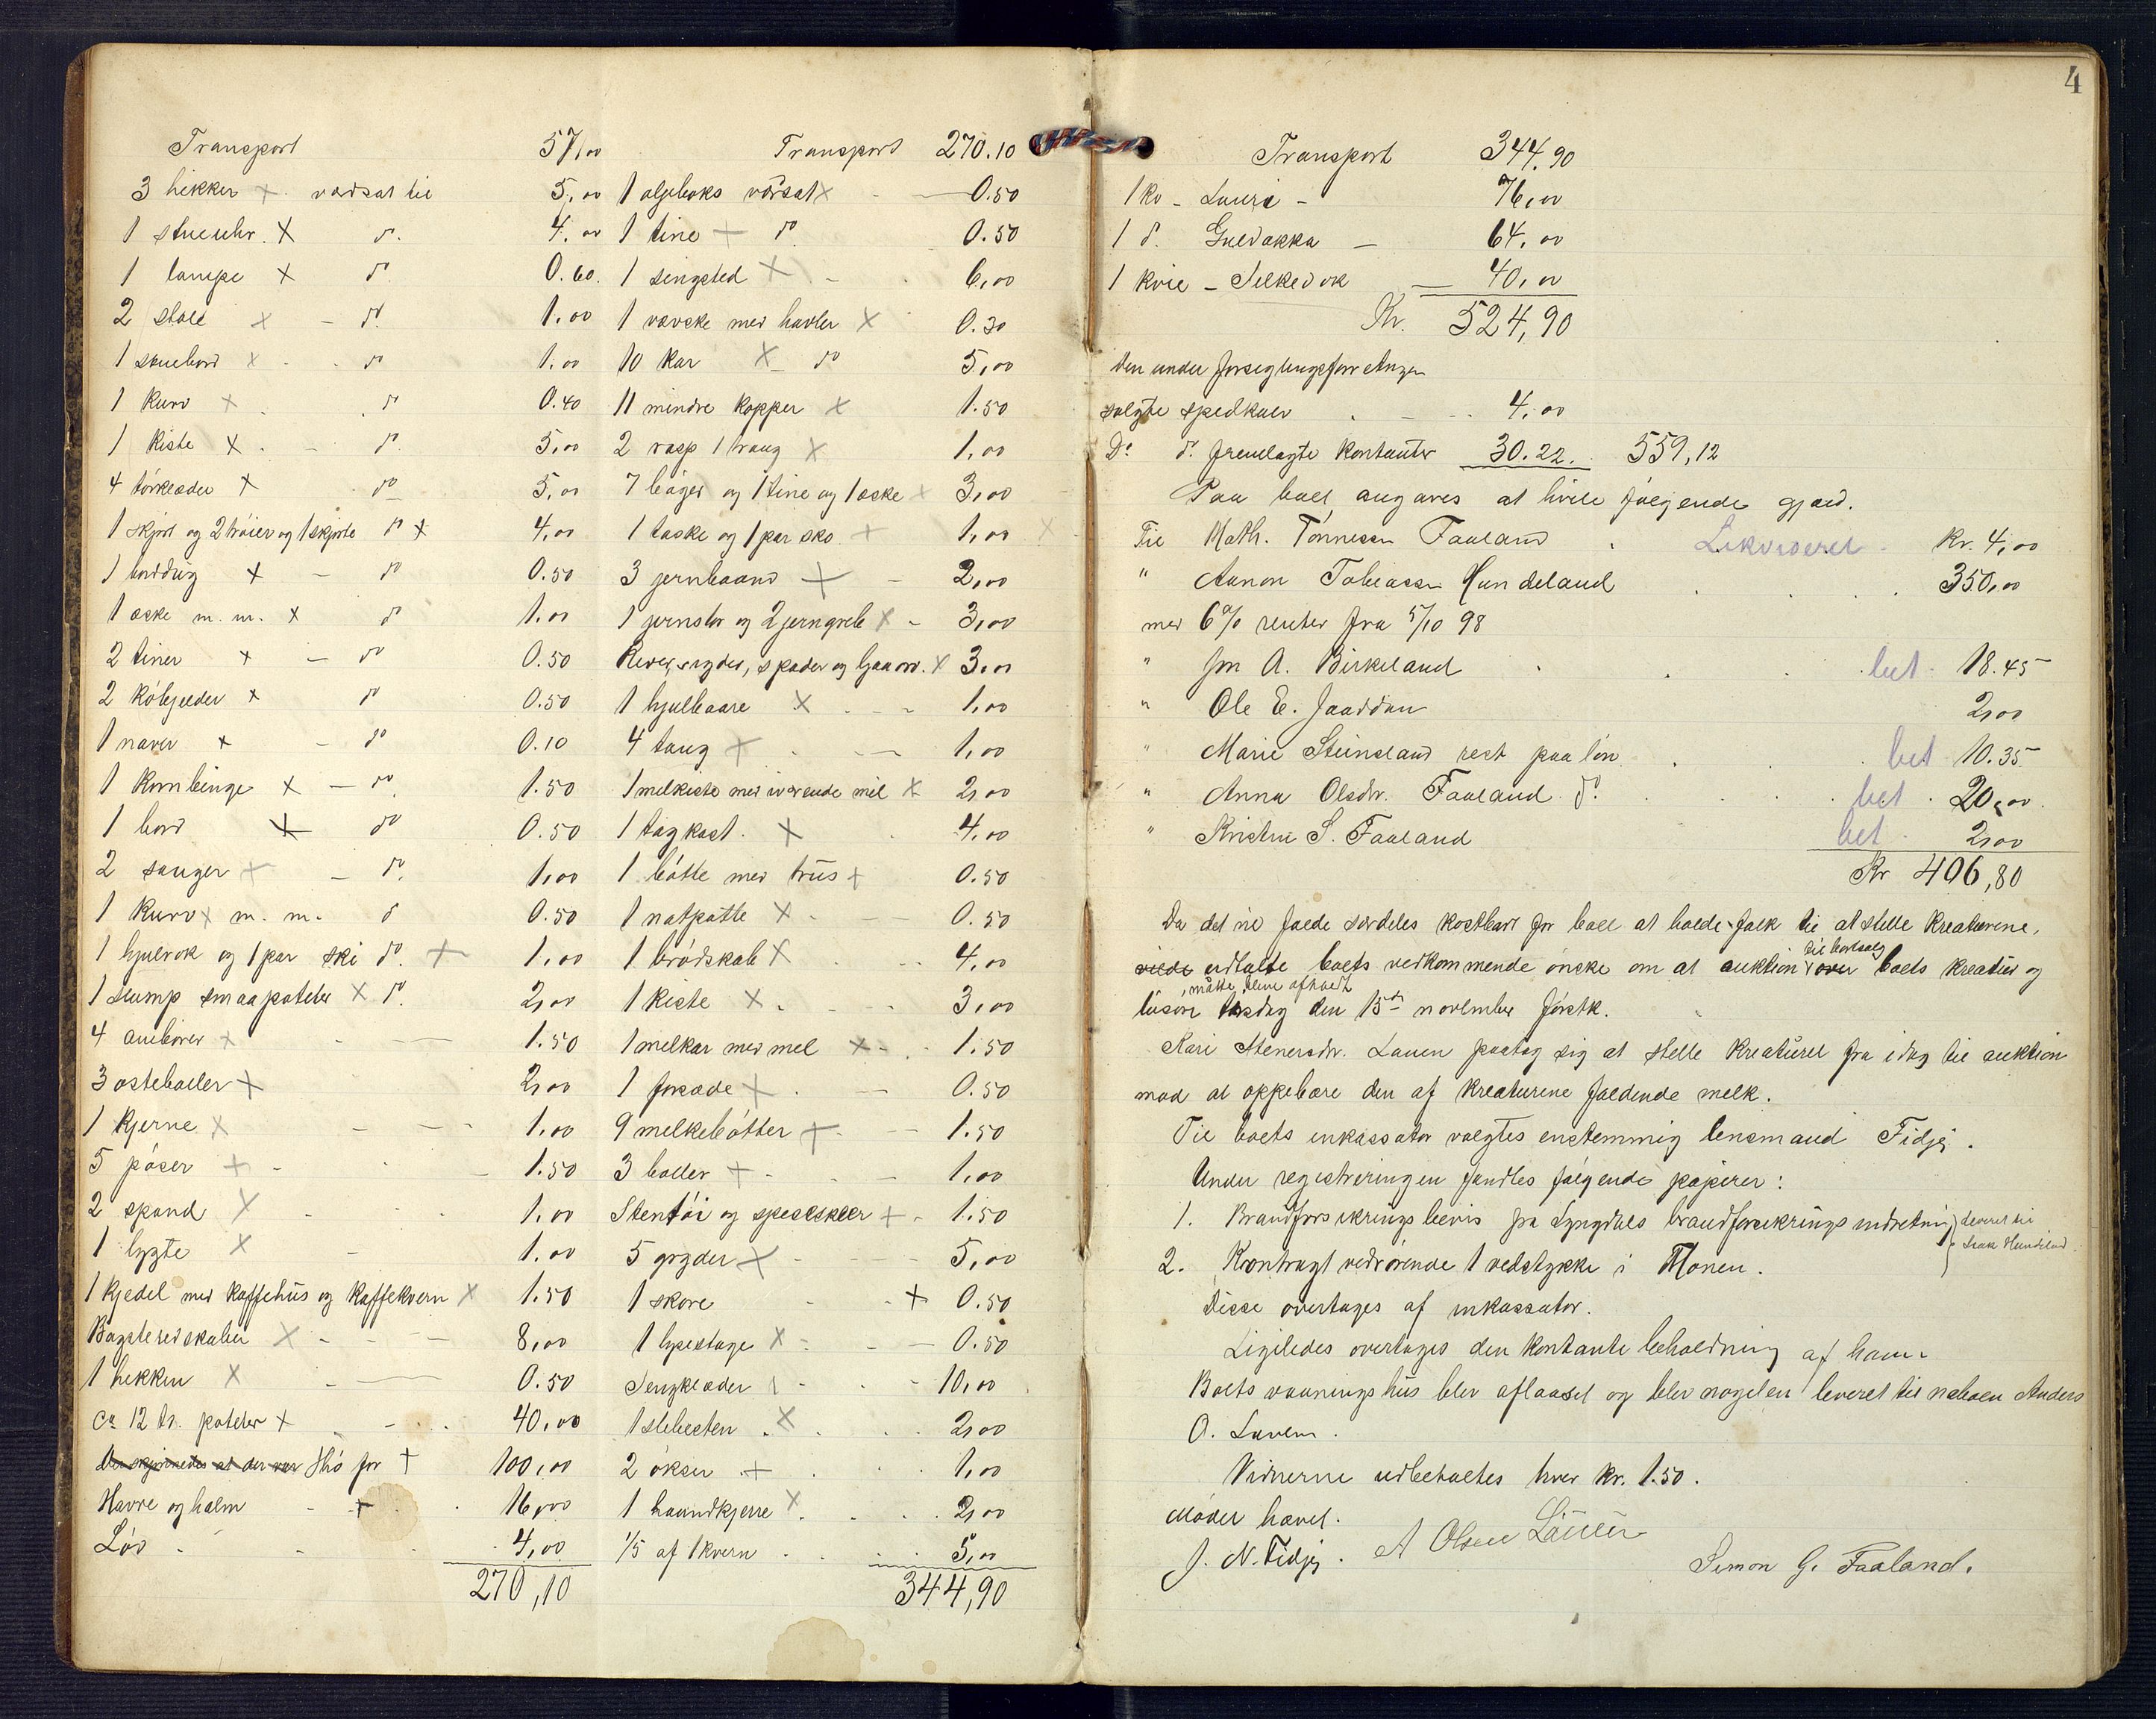 Transport 57,00
3 hekker x værdsat til 5,00
1 stueuhr. x do. 4,00
1 lampe x do 0.60.
2 stole x - do 1,00
1 stuebord x do 1,00
1 kurv x do 0.40
1 kiste x do 5,00
4 tørklæder x do 5,00
1 skjørt og 2 trøier og 1 skjorte do x 4,00
1 borddug x - do 0.50
1 æske m. m. x do 1,00
2 tiner x - do 0.50
2 x do 0.50
1 naver x - do 0.10
1 kornbinge x - do. 1.50
1 bord x do 0.50
2 senger x - do. 1,00
1 kurv x m. m. d 0.50
1 hjulrok og 1 par ski do. x 1,00
1 slump smaapoteter x do. 2,00
4 ambører x 1.50
3 osteboller x 2,00
1 kjerne x 1,00
5 poser x 1.50
2 spand x 1,00
1 lygte x 1,00
1 kjedel med kaffehus og kaffekvern x 1.50
Bagsteredskaber x 8,00
1 hekken x 0.50
Ca 12 tr. poteter x 40,00
Der skjønnedes at der var Hø for x 100,00
Havre og halm x 16,00
Løv 4,00
270,10
Transport 270.10
1 oljeboks værsat x 0.50
1 tine x do 0.50
1 sengsted x 6,00
1 vævske med havler x 0.30
10 kar x do 5,00
11 mindre kopper x 1.50
2 rasp 1 traug x 1,00
7 bøger og 1 tine og 1 æske x 3,00
1 taske og 1 par sko x 1,00 x
3 jernbaand x 2,00
1 jernstør og 2 jerngreb x 3,00
River, sigder, spader og ljaa m. x 3,00
1 hjulbaare x 1,00
4 taug x 1,00
1 melkiste med iværende mel x 2,00
1 tøgkast. x 4,00
1 bøtte med x 0.50
1 natpotte x 0.50
1 brødskab x 4,00
1 kiste x 3,00
1 melkar med mel x 1.50
1 x 0.50
9 melkebøtter x 1.50
3 boller x 1,00
Stentøi og speseskeer x 1.50
5 gryder x 5,00
1 skore x 0.50
1 lysestage x 0.50
Sengklæder 10,00
1 slibesten x 2,00
2 økser x 1,00
1 haandkjerre x 2,00
1/5 af 1 kvern 5,00
344,90
4
Transport 344,90
1 ko - Lauri - 76,00
1 d. Guldakka - 64,00
1 kvie - Silkedok - 40,00
Kr. 524,90
Den under forseglingsforretningen
solgte spedkalv 4,00
Do do. fremlagte kontanter 30.22. 559,12
Paa boet angaves at hvile følgende gjæld.
Til Math. Tønnessen Faaland Likvideret Kr. 4,00
" Aanon Tobiassen Hundeland 350,00
med 6% renter fra 5/10 98
" A. Birkeland bet 18.45
" Ole E. Jaaddan 2,00
" Marie Steinsland rest paa løn bet 10.35
" Anna Olsdtr. Faaland do. bet 20,00
" Kristen S. Faaland bet 2,00
Kr 406,80
Da det vil falde særdeles kostbart for boet at holde folk til at stelle kreaturene,
vilde udtalte boets vedkommende ønske om at auktion til bortsalg over boets kreatur og
løsøre måtte blive afholdt tirsdag den 15de november førstk.
Kari Stenersdtr. Lauen paatog sig at stelle kreaturet fra idag til auktion
mod at oppebære den af kreaturene faldende melk.
Til boets inkassator valgtes enstemmig lensmand Tidjej.
Under registreringen fandtes følgende papirer:
1. Brandforsikringsbevis fra Lyngdals brandforsikringsindretning } leveret til
Isak Hundeland.
2. Kontragt vedrørende 1 vedstykke i Monen.
Disse overtages af inkassator.
Ligeledes overtages den kontante beholdning af ham.
Boets vaaningshus blev aflaaset og blev nøgelen leveret til naboen Anders
O. Lauen.
Vidnerne udbetaltes hver kr. 1.50.
Mødet hævet.
J. N. Tidjej. A Olsen Lauen Simon G. Faaland.